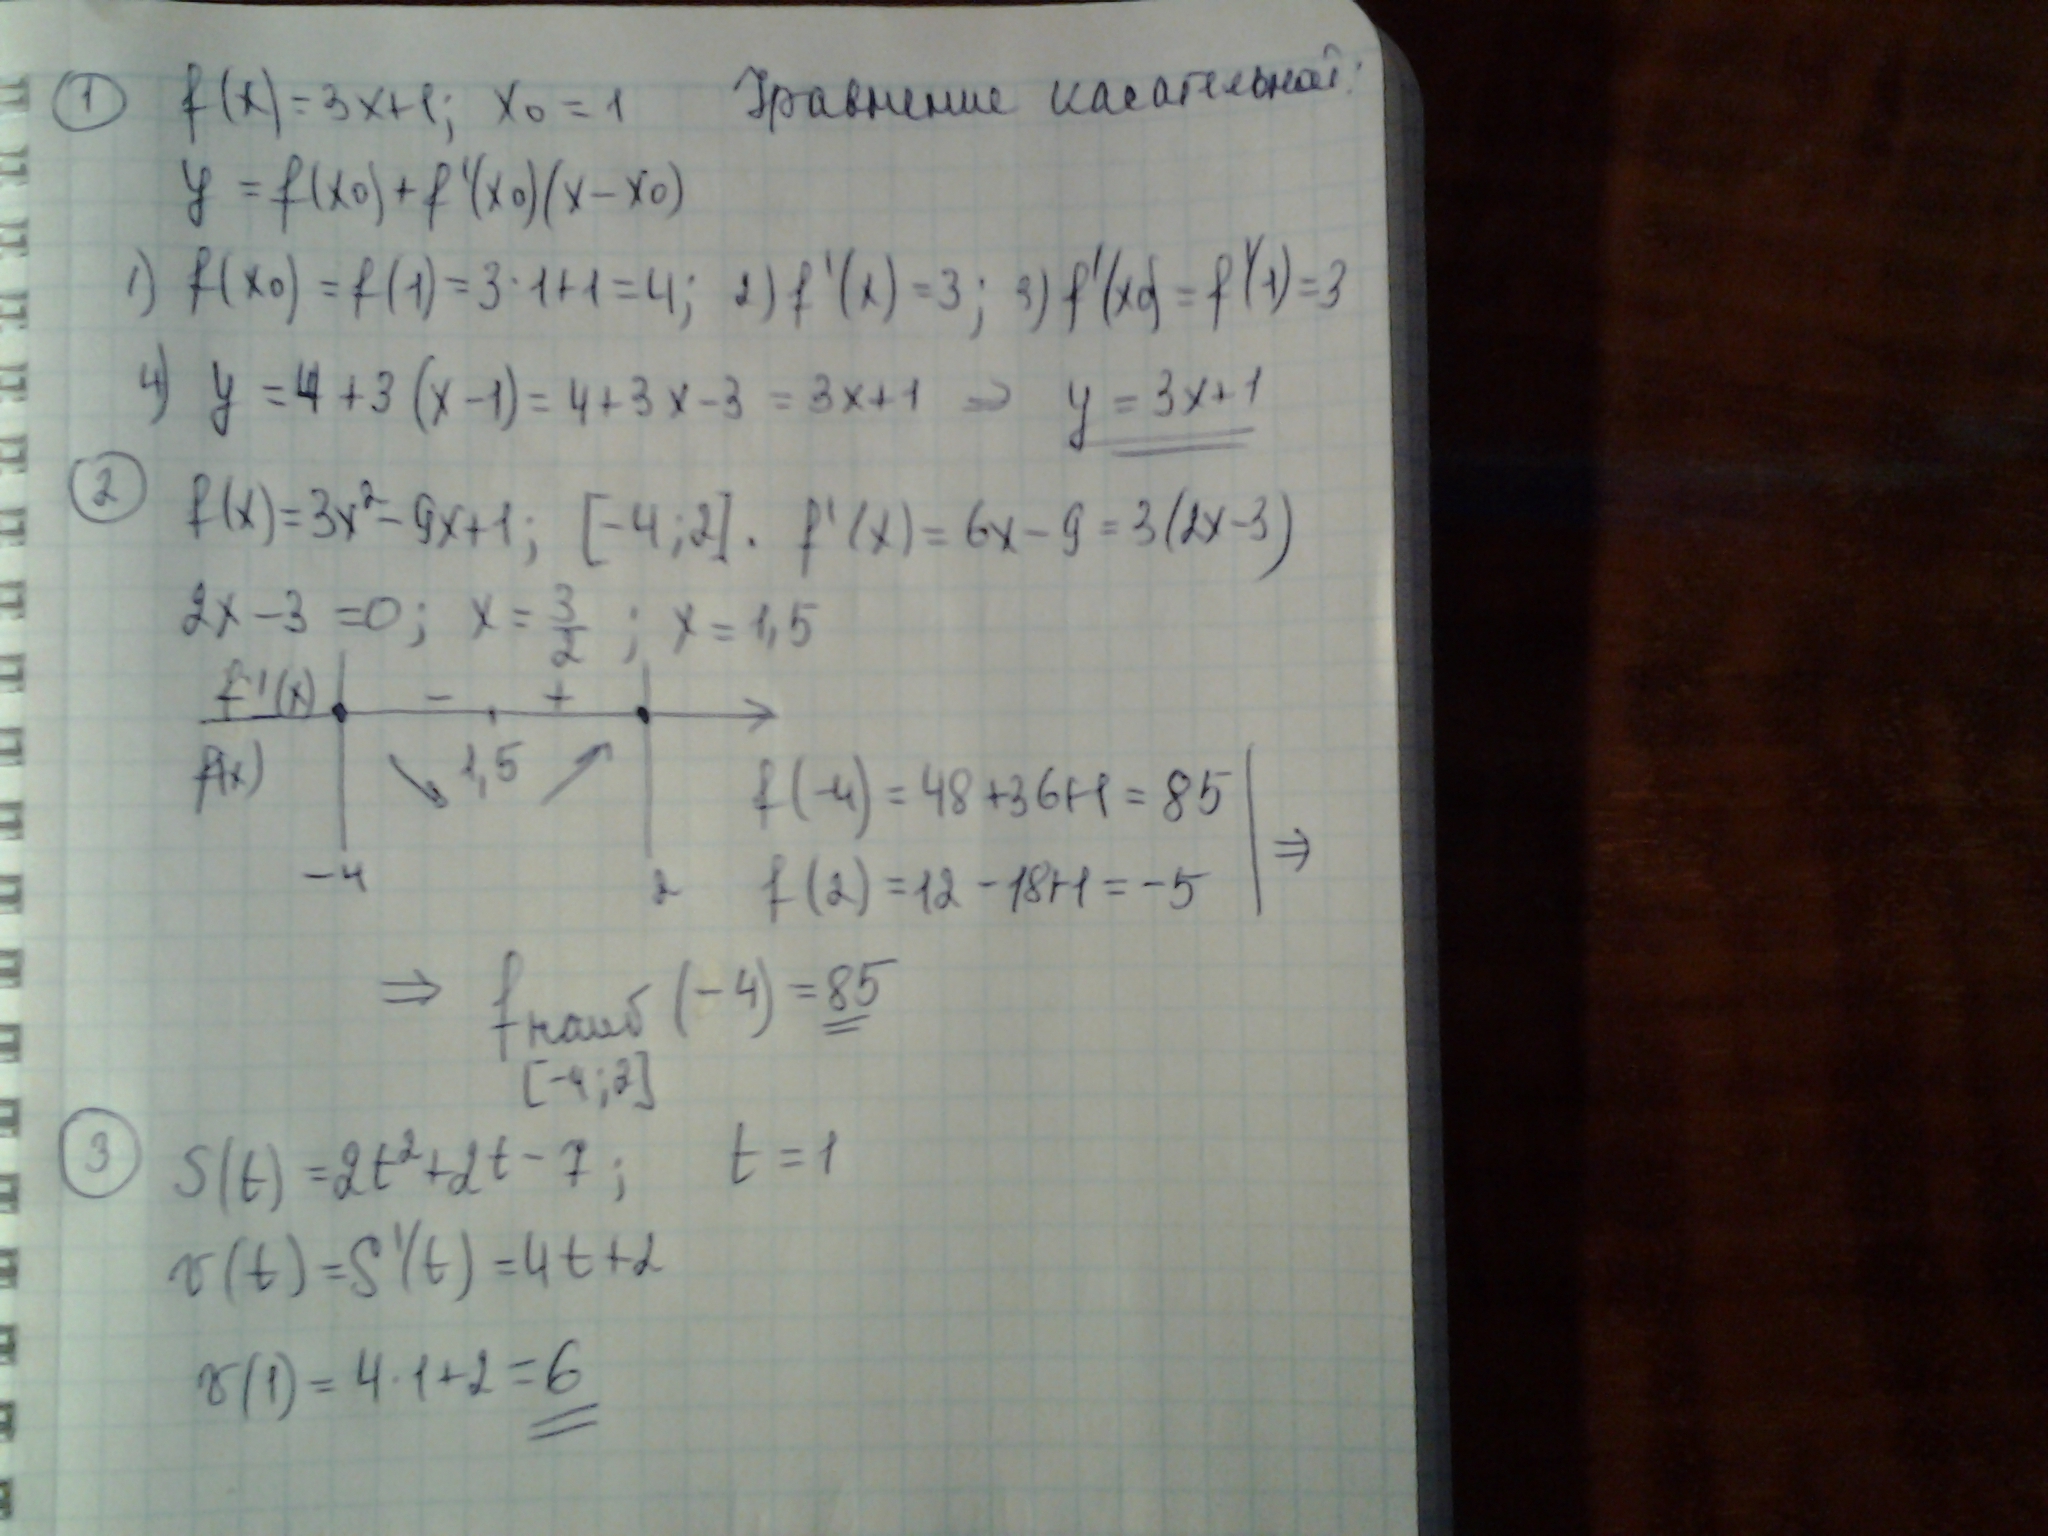 ① f(x)=3x+1; x₀=1 Уравнение касательной:
y = f(x₀)+f'(x₀)(x-x₀)
1) f(x₀) = f(1)=3·1+1=4; 2) f'(x)=3; 3) f'(x₀)=f'(1)=3
4) y =4+3(x-1)=4+3x-3=3x+1 ⇒ y=3x+1
② f(x)=3x²-9x+1; [-4;2]. f'(x)=6x-9=3(2x-3)
2x-3=0; x=3/2; x=1,5
f'(x) - +
f(x) 1,5
f(-4)=48+36+1=85
-4 2 f(2)=12-18+1=-5 ⇒
⇒ f наиб (-4)=85
[-4;2]
③ S(t)=2t²+2t-7; t=1
v(t)=S'(t)=4t+2
v(1)=4·1+2=6